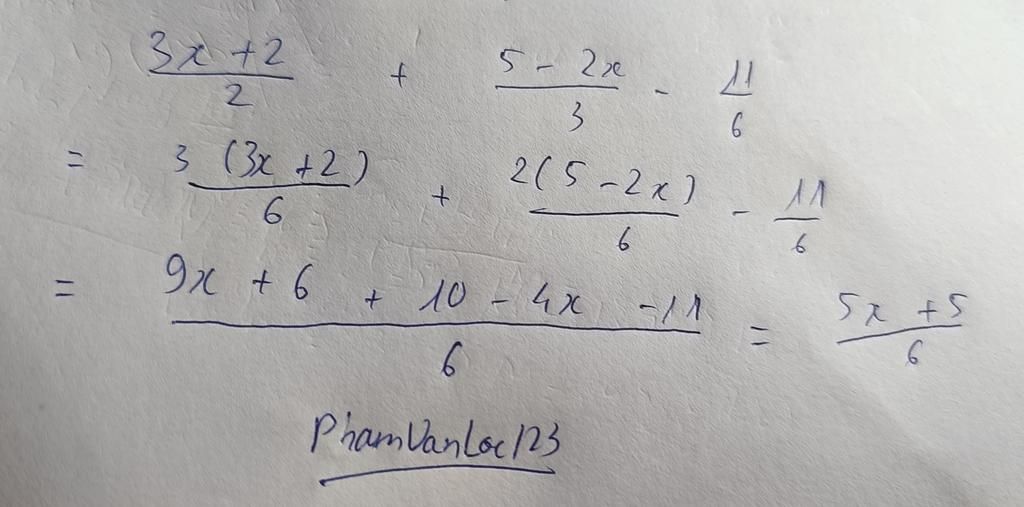 3x + 2 / 2 + 5 - 2x / 3 - 11 / 6
= 3 (3x + 2) / 6 + 2(5 - 2x) / 6 - 11 / 6
= 9x + 6 + 10 - 4x - 11 / 6 = 5x + 5 / 6
PhamVanLoc123